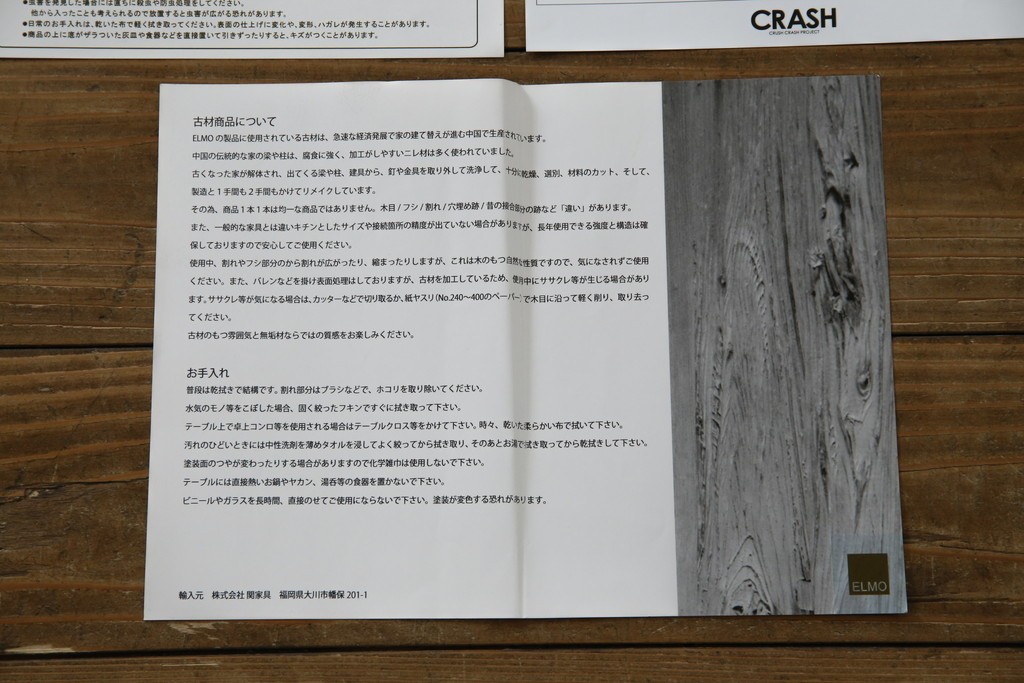 ●虫害を発見した場合には直ちに殺虫や防虫処理をしてください。
他から入ったことも考えられるので放置すると虫害が広がる恐れがあります。
●日常のお手入れは、乾いた布で軽く拭き取ってください。表面の仕上げに変化や、変形、ハガレが発生することがあります。
●商品の上に底がザラついた灰皿や食器などを直接置いて引きずったりすると、キズがつくことがあります。
CRASH
CRUSH CRASH PROJECT
古材商品について
ELMOの製品に使用されている古材は、急速な経済発展で家の建て替えが進む中国で生産されています。
中国の伝統的な家の梁や柱は、腐食に強く、加工がしやすいニレ材は多く使われていました。
古くなった家が解体され、出てくる梁や柱、建具から、釘や金具を取り外して洗浄して、十分に乾燥、選別、材料のカット、そして、
製造と1手間も2手間もかけてリメイクしています。
その為、商品1本1本は均一な商品ではありません。木目/フシ/割れ/穴埋め跡/昔の接合部分の跡など「違い」があります。
また、一般的な家具とは違いキチンとしたサイズや接続箇所の精度が出ていない場合がありますが、長年使用できる強度と構造は確
保しておりますので安心してご使用ください。
使用中、割れやフシ部分のから割れが広がったり、縮まったりしますが、これは木のもつ自然な性質ですので、気になされずご使用
ください。また、バレンなどを掛け表面処理はしておりますが、古材を加工しているため、使用中にササクレ等が生じる場合があり
ます。ササクレ等が気になる場合は、カッターなどで切り取るか、紙ヤスリ(No.240〜400のペーパー)で木目に沿って軽く削り、取り去っ
てください。
古材のもつ雰囲気と無垢材ならではの質感をお楽しみください。
お手入れ
普段は乾拭きで結構です。割れ部分はブラシなどで、ホコリを取り除いてください。
水気のモノ等をこぼした場合、固く絞ったフキンですぐに拭き取って下さい。
テーブル上で卓上コンロ等を使用される場合はテーブルクロス等をかけて下さい。時々、乾いた柔らかい布で拭いて下さい。
汚れのひどいときには中性洗剤を薄めタオルを浸してよく絞ってから拭き取り、そのあとお湯で拭き取ってから乾拭きして下さい。
塗装面のつやが変わったりする場合がありますので化学雑巾は使用しないで下さい。
テーブルには直接熱いお鍋ややカン、湯呑等の食器を置かないで下さい。
ビニールやガラスを長時間、直接のせてご使用にならないで下さい。塗装が変色する恐れがあります。
輸入元 株式会社 関家具 福岡県大川市幡保 201-1
ELMO